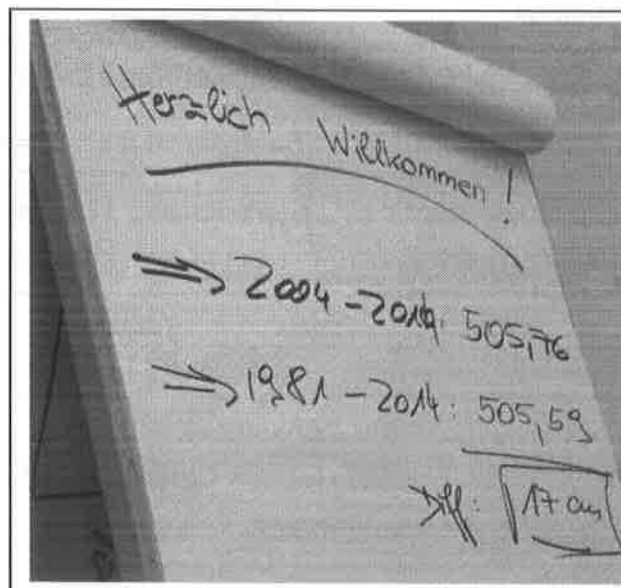 Herzlich Willkommen!
⇒ 2004 - 2014: 505,76
⇒ 1981 - 2014: 505,59
Diff: 17 cm